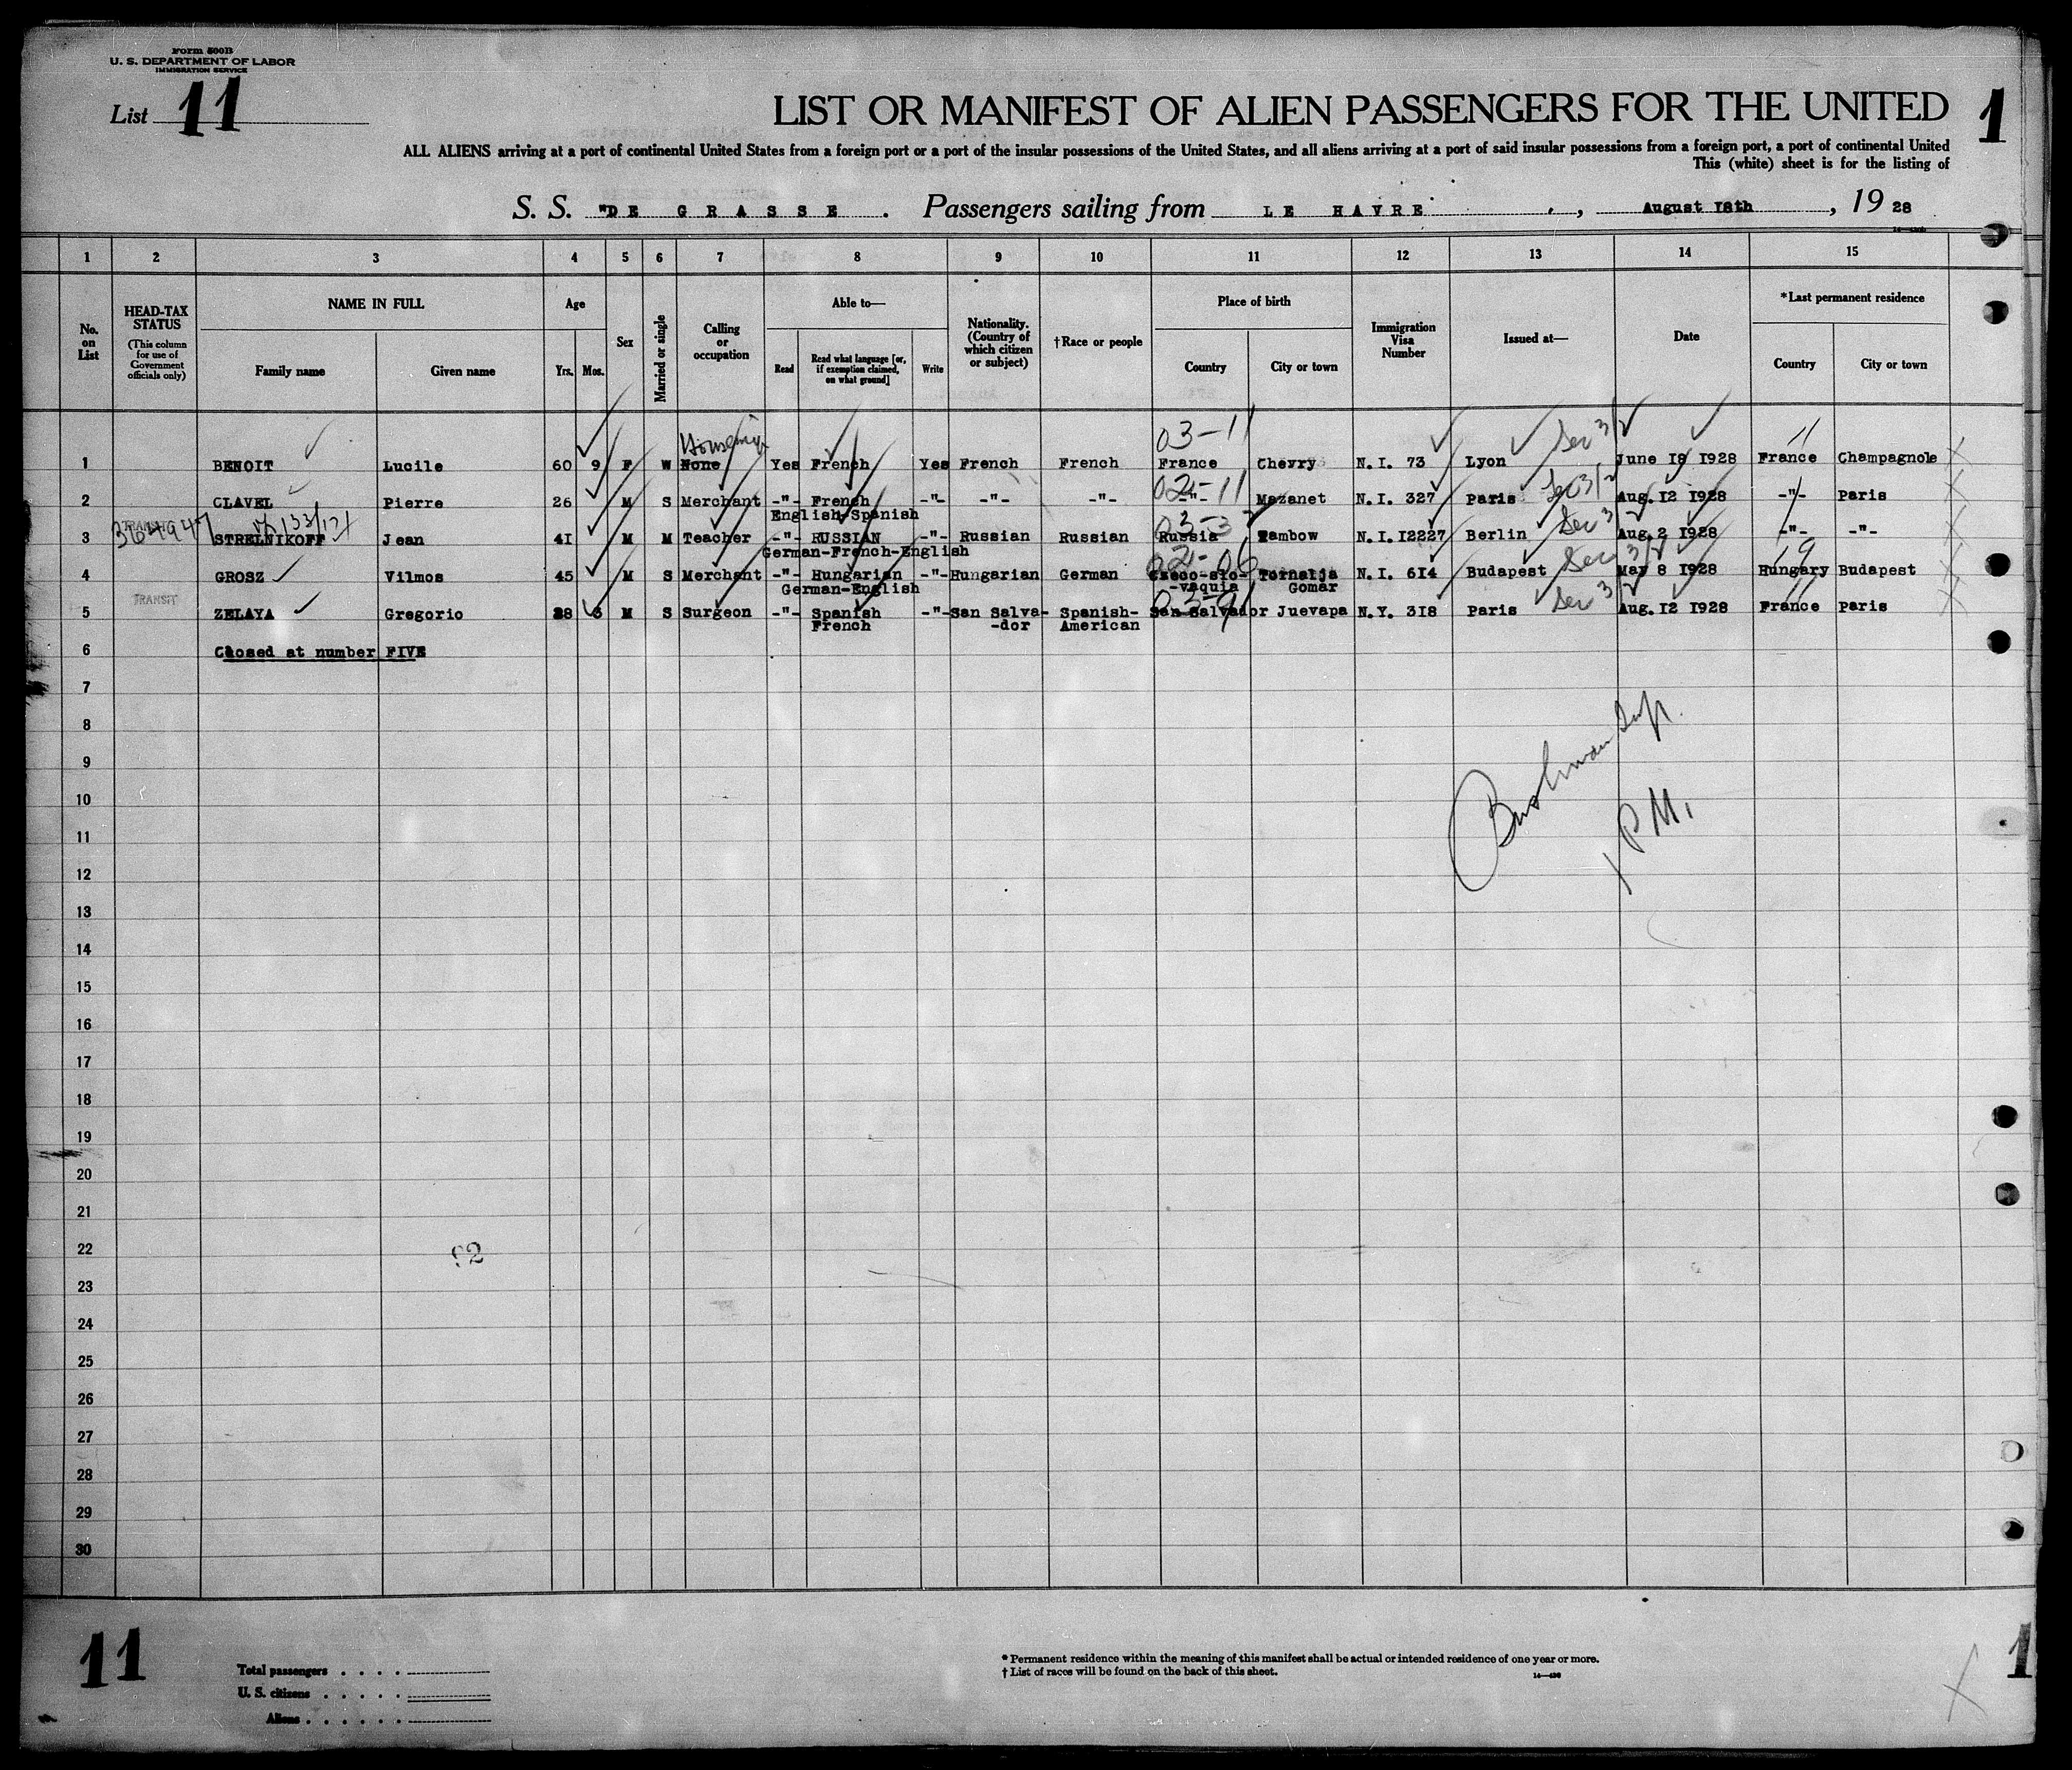 Form 500B
U. S. DEPARTMENT OF LABOR
IMMIGRATION SERVICE
List 11
LIST OR MANIFEST OF ALIEN PASSENGERS FOR THE UNITED
1
ALL ALIENS arriving at a port of continental United States from a foreign port or a port of the insular possessions of the United States, and all aliens arriving at a port of said insular possessions from a foreign port, a port of continental United
This (white) sheet is for the listing of
S. S. "DE GRASSE . Passengers sailing from LE HAVRE , August 18th , 19 28
1 2 3 4 5 6 7 8 9 10 11 12 13 14 15
No. on List
HEAD-TAX STATUS
(This column for use of Government officials only)
NAME IN FULL
Family name
Given name
Age
Yrs. Mos.
Sex
Married or single
Calling or occupation
Able to—
Read
Read what language [or, if exemption claimed, on what ground]
Write
Nationality. (Country of which citizen or subject)
†Race or people
Place of birth
Country
City or town
Immigration Visa Number
Issued at—
Date
*Last permanent residence
Country
City or town
Housewife 03-11 Sec 3/2 11
1 BENOIT Lucile 60 9 F W None Yes French Yes French French France Chevry N.I. 73 Lyon June 19 1928 France Champagnole
02-11 Sec 3/2
2 CLAVEL Pierre 26 M S Merchant -"- French -"- -"- -"- -"- Mazanet N.I. 327 Paris Aug. 12 1928 -"- Paris
English-Spanish
TRANSIT 364947 133/121 03-3 Sec 3
3 STRELNIKOFF Jean 41 M M Teacher -"- RUSSIAN -"- Russian Russian Russia Tambow N.I. 12227 Berlin Aug. 2 1928 -"- -"-
German-French-English
02-06 Sec 3/2 19
4 GROSZ Vilmos 45 M S Merchant -"- Hungarian -"- Hungarian German Czeco-slo- Tornalja N.I. 614 Budapest May 8 1928 Hungary Budapest
German-English -vaquia Gomar
TRANSIT 03-91 Sec 3 11
5 ZELAYA Gregorio 28 6 M S Surgeon -"- Spanish -"- San Salva- Spanish- San Salvador Juevapa N.Y. 318 Paris Aug. 12 1928 France Paris
French -dor American
6 Closed at number FIVE
7
8
9
10
11
12
13
14
15
16
17
18
19
20
21
22
23
24
25
26
27
28
29
30
Insp.
P M.
92
11
Total passengers
U. S. citizens
Aliens
* Permanent residence within the meaning of this manifest shall be actual or intended residence of one year or more.
† List of races will be found on the back of this sheet.
1